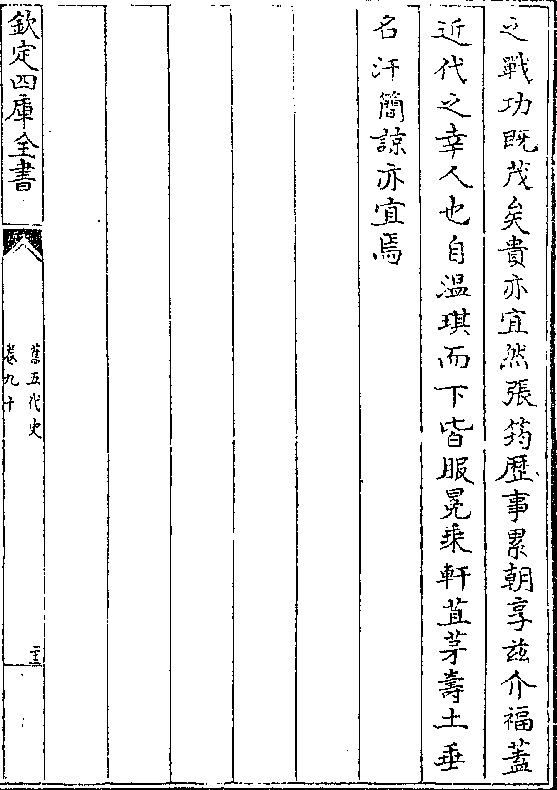 之戰功既茂矣貴亦宜然張筠歷事累朝享兹介福蓋
近代之幸人也自温琪而下皆服冕乘軒苴茅壽土垂
名汗簡諒亦宜焉
欽定四庫全書
舊五代史
卷九十